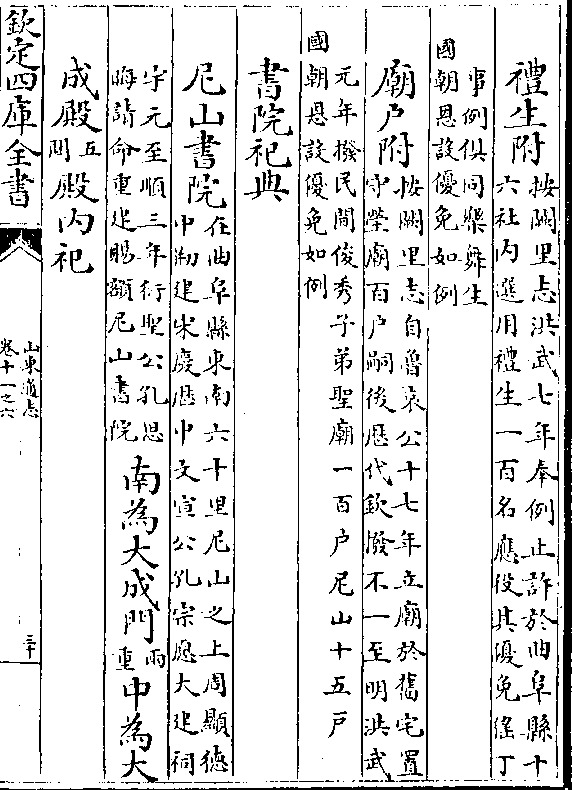 禮生附
按闕里志洪武七年奉例止許於曲阜縣十
六社內選用禮生一百名應役其優免徭丁
事例俱同樂舞生
國朝恩設優免如例
廟户附
按闕里志自魯哀公十七年立廟於舊宅置
守塋廟百户嗣後歷代欽撥不一至明洪武
元年撥民間俊秀子弟聖廟一百户尼山十五户
國朝恩設優免如例
書院祀典
尼山書院
在曲阜縣東南六十里尼山之上周顯德
中剏建宋慶歷中文宣公孔宗愿大建祠
宇元至順三年衍聖公孔思
晦請命重建賜額尼山書院
南為大成門
兩
重
中為大
成殿
五
間
殿內祀
欽定四庫全書
山東通志
卷十一之六
三十